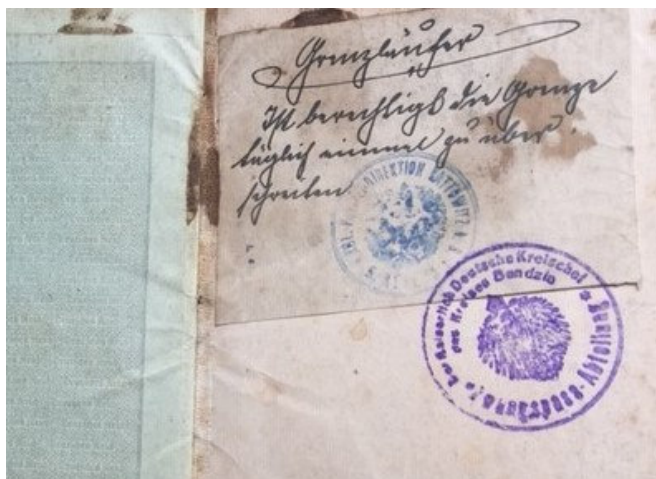 Grenzläufer
Ist berechtigt die Grenze
täglich einmal zu über
schreiten
DIREKTION KATTOWITZ
Kaiserlich Deutsche Kreischef
des Kreises Bendzin